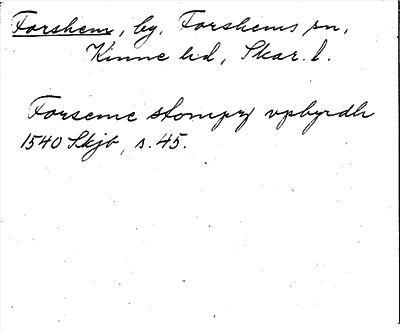 Forshem, by, Forshems sn,
Kinne hd, Skar. l.
Forseme stompn vpbyrdh
1540 Skjb, s. 45.